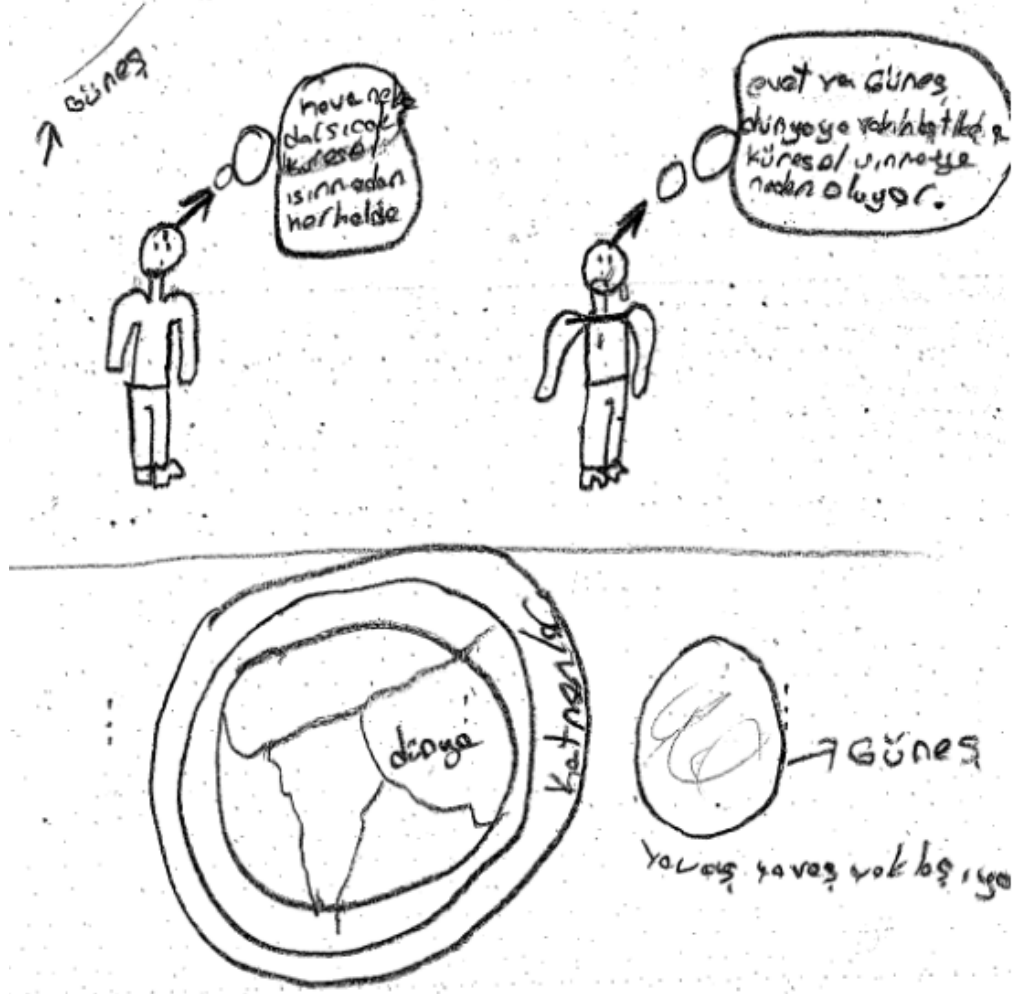 Güneş
hava ne ka
dar sıcak
küresel
ısınmadan
herhalde
evet ya Güneş
dünyaya yakınlaştıkça
küresel ısınmaya
neden oluyor.
Katmanlar
dünya
Güneş
yavaş yavaş yaklaşıyo